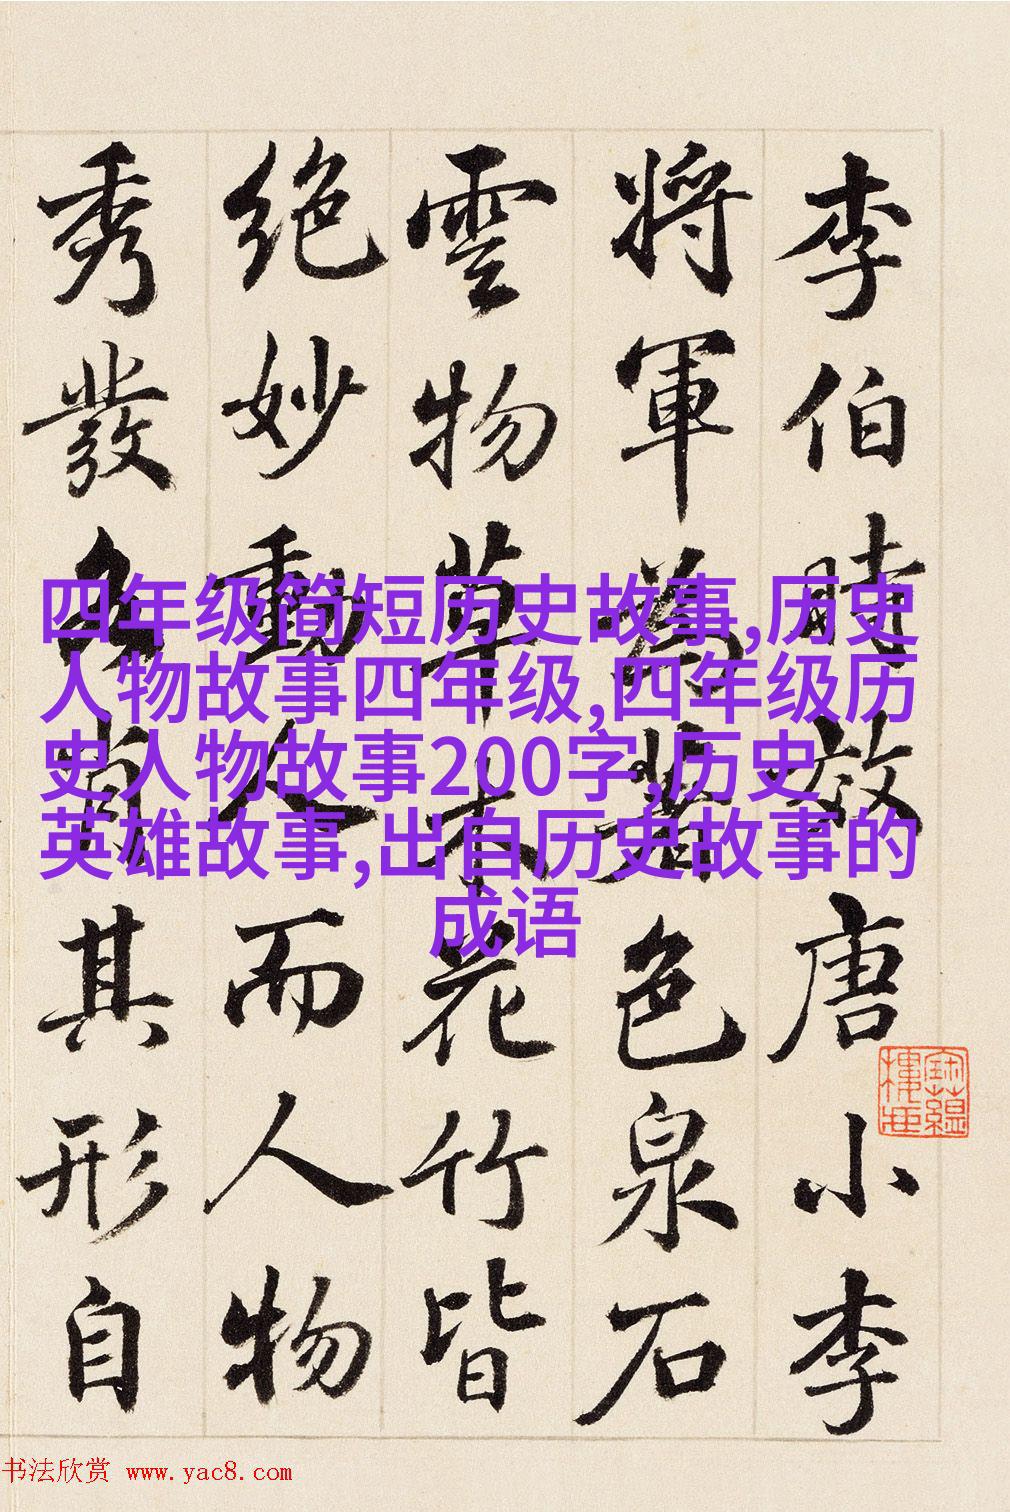 李伯時效唐小李
將軍為著色泉石
雲物草木花竹皆
絕妙動人而人物
秀發各肖其形自
四年级简短历史故事,历史
人物故事四年级,四年级历
史人物故事200字,历史
英雄故事,出自历史故事的
成语
书法欣赏 www.yac8.com